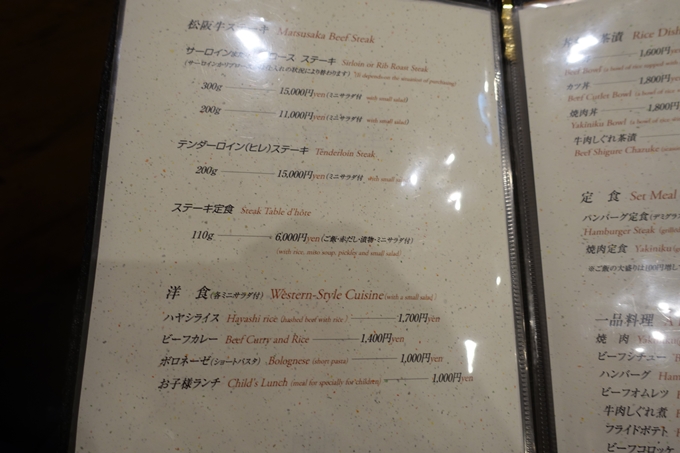 松阪牛ステーキ Matsusaka Beef Steak
ステーキ Sirloin or Rib Roast Steak
300g 15,000円yen (ミニサラダ付 with small salad)
200g 11,000円yen (ミニサラダ付 with small salad)
テンダーロイン(ヒレ)ステーキ Tenderloin Steak
200g 15,000円yen (ミニサラダ付 with small salad)
ステーキ定食 Steak Table d'hôte
110g 6,000円yen (ご飯・赤だし・漬物・ミニサラダ付)
(with rice, miso soup, pickles and small salad)
洋 食 (各ミニサラダ付) Western-Style Cuisine (with a small salad)
ハヤシライス Hayashi rice (hashed beef with rice) 1,700円yen
ビーフカレー Beef Curry and Rice 1,400円yen
ボロネーゼ(ショートパスタ) Bolognese (short pasta) 1,000円yen
お子様ランチ Child's Lunch (meal for specially for children) 1,000円yen
茶漬 Rice
1,600円
Beef Bowl
カツ丼 1,800円
Beef Cutlet Bowl
焼肉丼 1,800円
Yakiniku Bowl
牛肉しぐれ茶漬
Beef Shigure Chazuke
定 食 Set Meal
ハンバーグ定食
Hamburger Steak
焼肉定食 Yakiniku
※ご飯の大盛りは100円増し
一品料理
焼 肉
ビーフシチュー
ハンバーグ
ビーフオムレツ
牛肉しぐれ煮
フライドポテト
ビーフコロッケ